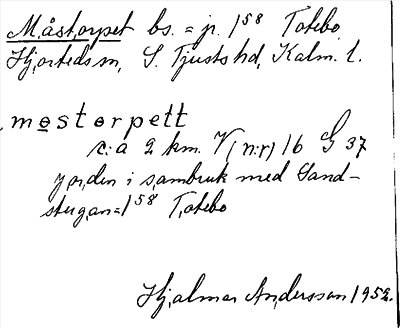 Måstorpet bs. = jr. 1⁵⁸ Totebo
Hjorteds sn, S. Tjusts hd, Kalm. l.
mostorpett
c:a 2 km. V(n:r) 16 G 37
jorden i sambruk med Sand-
stugan = 1⁵⁸ Totebo
Hjalmar Andersson 1952.